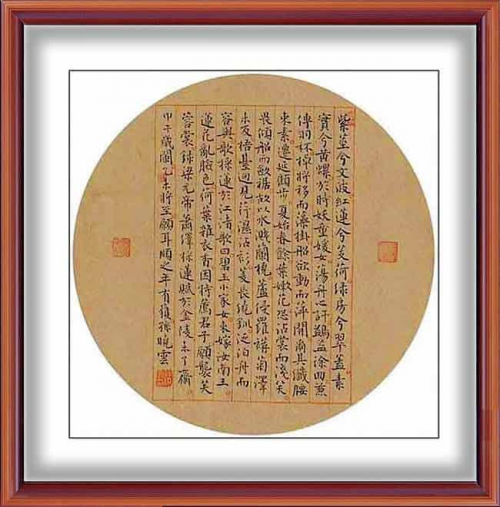 紫莖兮文波紅蓮兮芰荷緑房兮翠蓋素
實兮黄螺於時妖童媛女蕩舟心許鷁徐回兼
傳羽杯棹將移而藻掛船欲動而萍開爾其纖腰
束素遷延顧步夏始春餘葉嫩花恐沾裳而淺笑
畏傾船而斂裾故以水濺蘭橈蘆侵羅菊澤
未反梧臺迥見荇濕沾衫菱長繞釧泛泊舟而
容與歌採蓮於江渚歌曰碧玉小家女來嫁汝南王
蓮花亂臉色荷葉雜衣香因持薦君子願襲芙
蓉裳錄梁元帝蕭澤採蓮賦於金陵未了齋
甲午歲閏將至願耳順之年有孫曉雲